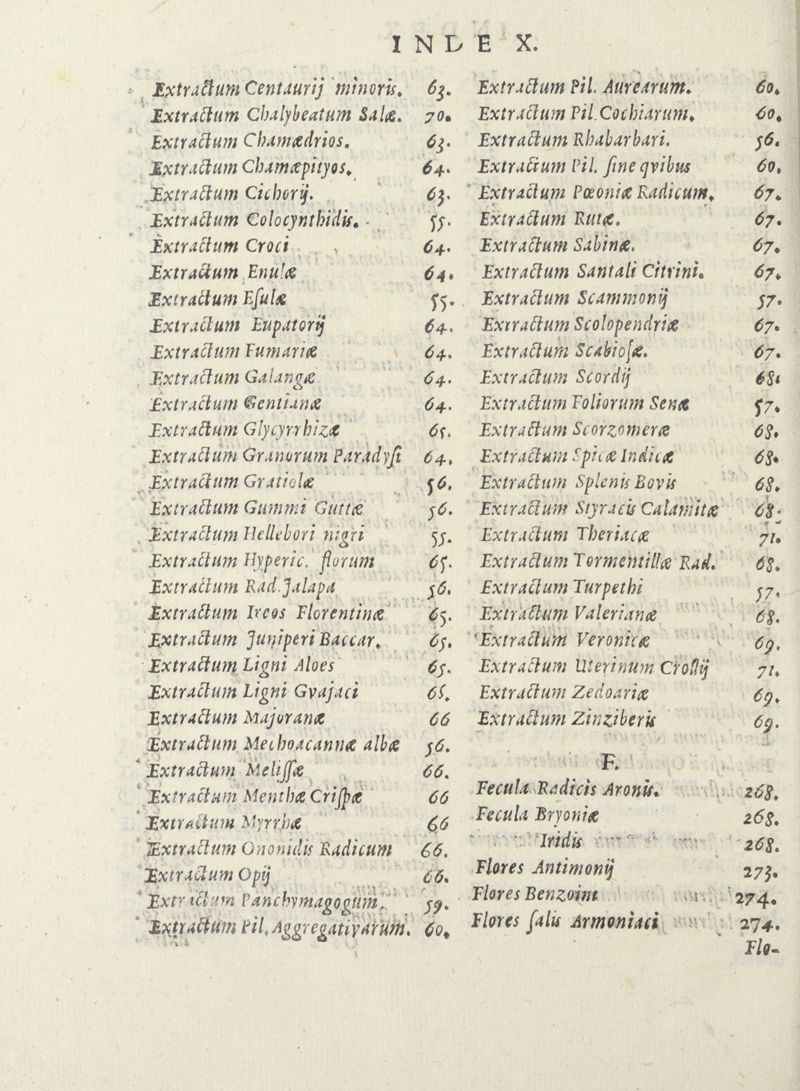 INDEX.
Extractum Centaurij minoris. 63.
Extractum Chalybeatum Salæ. 70.
Extractum Chamædrios. 63.
Extractum Chamæpityos. 64.
Extractum Cichorij. 63.
Extractum Colocynthidis. 55.
Extractum Croci 64.
Extractum Enulæ 64.
Extractum Eſulæ 55.
Extractum Eupatorij 64.
Extractum Fumariæ 64.
Extractum Galangæ 64.
Extractum Gentianæ 64.
Extractum Glycyrrhizæ 65.
Extractum Granorum Paradyſi 64.
Extractum Gratiolæ 56.
Extractum Gummi Guttæ 56.
Extractum Hellebori nigri 55.
Extractum Hyperic. florum 65.
Extractum Rad. Jalapa 56.
Extractum Ireos Florentinæ 65.
Extractum Juniperi Baccar. 65.
Extractum Ligni Aloes 65.
Extractum Ligni Gvajaci 65.
Extractum Majoranæ 66
Extractum Mechoacannæ albæ 56.
Extractum Meliſſæ 66.
Extractum Menthæ Criſpæ 66
Extractum Myrrhæ 66
Extractum Ononidis Radicum 66.
Extractum Opij 66.
Extractum Panchymagogum. 59.
Extractum Pil. Aggregativarum. 60.
Extractum Pil. Aurearum. 60.
Extractum Pil. Cochiarum. 60.
Extractum Rhabarbari. 56.
Extractum Pil. ſine qvibus 60.
Extractum Pœoniæ Radicum. 67.
Extractum Rutæ. 67.
Extractum Sabinæ. 67.
Extractum Santali Citrini. 67.
Extractum Scammonij 57.
Extractum Scolopendriæ 67.
Extractum Scabioſæ. 67.
Extractum Scordij 68.
Extractum Foliorum Senæ 57.
Extractum Scorzomeræ 68.
Extractum Spicæ Indicæ 68.
Extractum Splenis Bovis 68.
Extractum Styracis Calamitæ 68.
Extractum Theriacæ 71.
Extractum Tormentillæ Rad. 68.
Extractum Turpethi 57.
Extractum Valerianæ 68.
Extractum Veronicæ 69.
Extractum Uterinum Crollij 71.
Extractum Zedoariæ 69.
Extractum Zinziberis 69.
F.
Fecula Radicis Aronis. 268.
Fecula Bryoniæ 268.
Iridis 268.
Flores Antimonij 273.
Flores Benzoini 274.
Flores ſalis Armoniaci 274.
Flo-